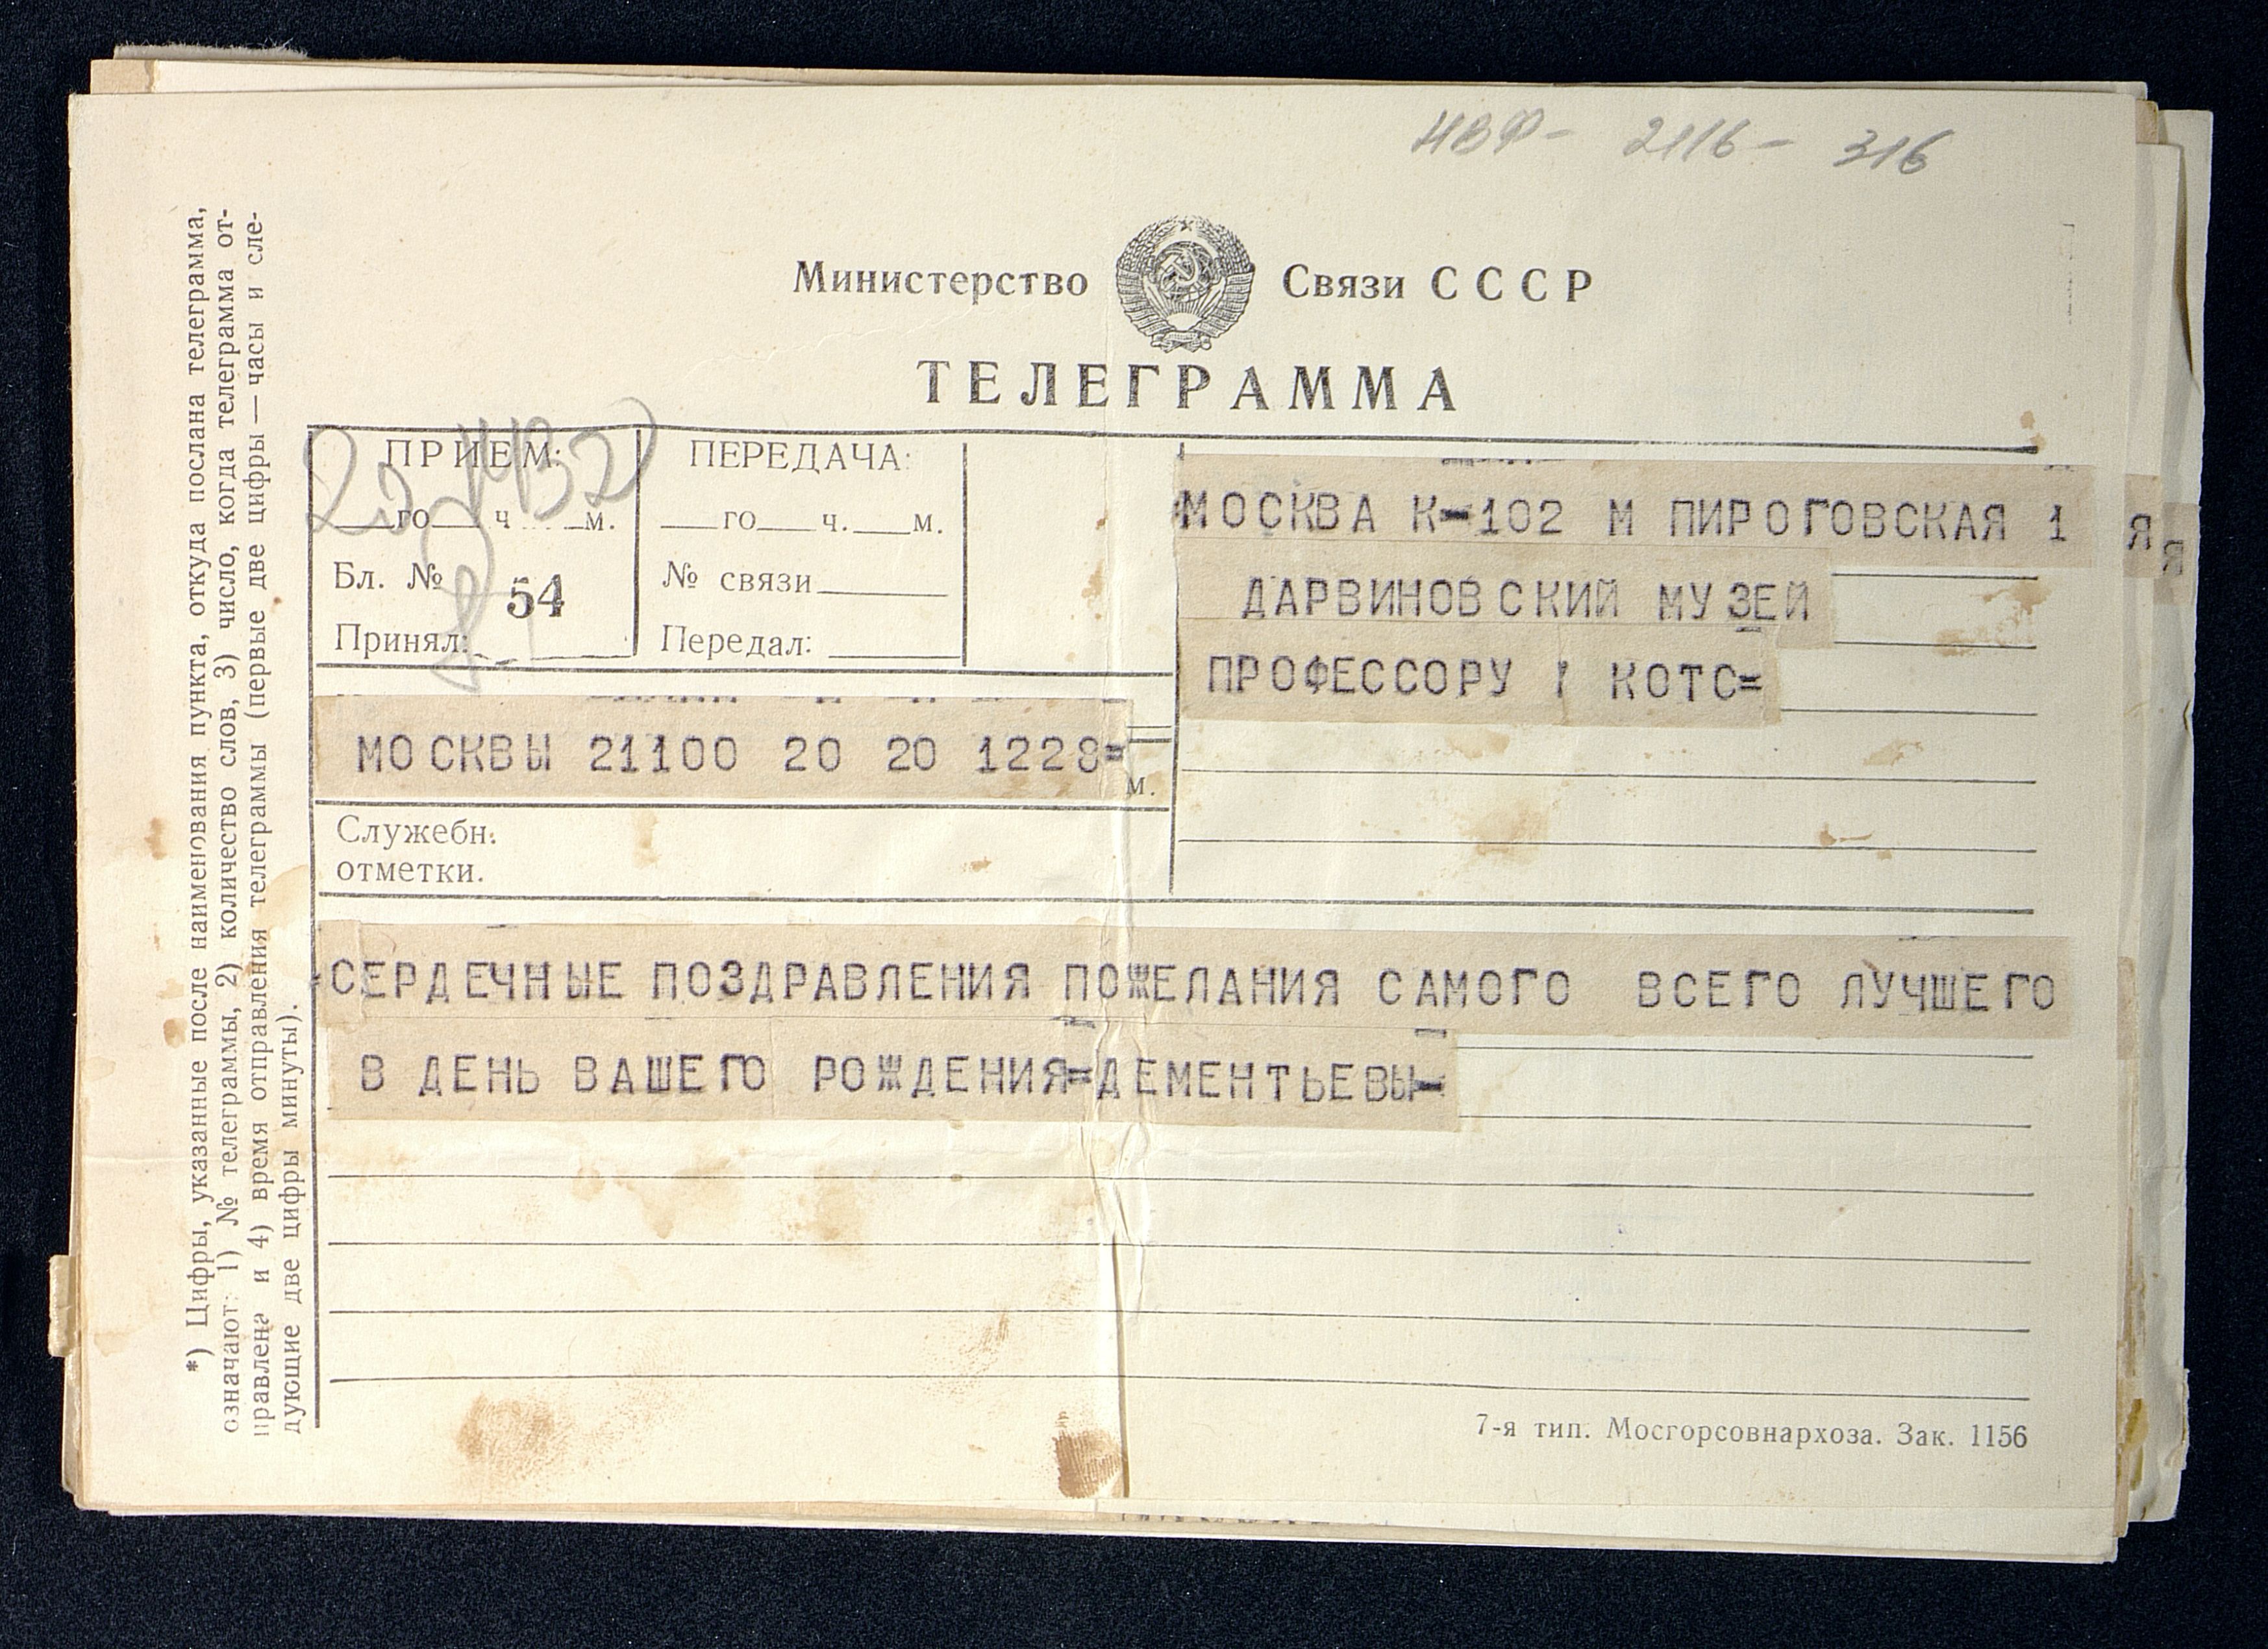 НВФ- 2116- 316
Министерство Связи СССР
ТЕЛЕГРАММА
ПРИЕМ:
го ч м.
Бл. № 54
Принял:
ПЕРЕДАЧА:
го ч. м.
№ связи
Передал:
МОСКВА К-102 М ПИРОГОВСКАЯ 1
Я
Я
ДАРВИНОВСКИЙ МУЗЕЙ
ПРОФЕССОРУ КОТС=
МОСКВЫ 21100 20 20 1228=
м.
Служебн.
отметки.
СЕРДЕЧНЫЕ ПОЗДРАВЛЕНИЯ ПОЖЕЛАНИЯ САМОГО ВСЕГО ЛУЧШЕГО
В ДЕНЬ ВАШЕГО РОЖДЕНИЯ=ДЕМЕНТЬЕВЫ-
*) Цифры, указанные после наименования пункта, откуда послана телеграмма,
означают: 1) № телеграммы, 2) количество слов, 3) число, когда телеграмма от-
правлена и 4) время отправления телеграммы (первые две цифры — часы и сле-
дующие две цифры минуты).
7-я тип. Мосгорсовнархоза. Зак. 1156